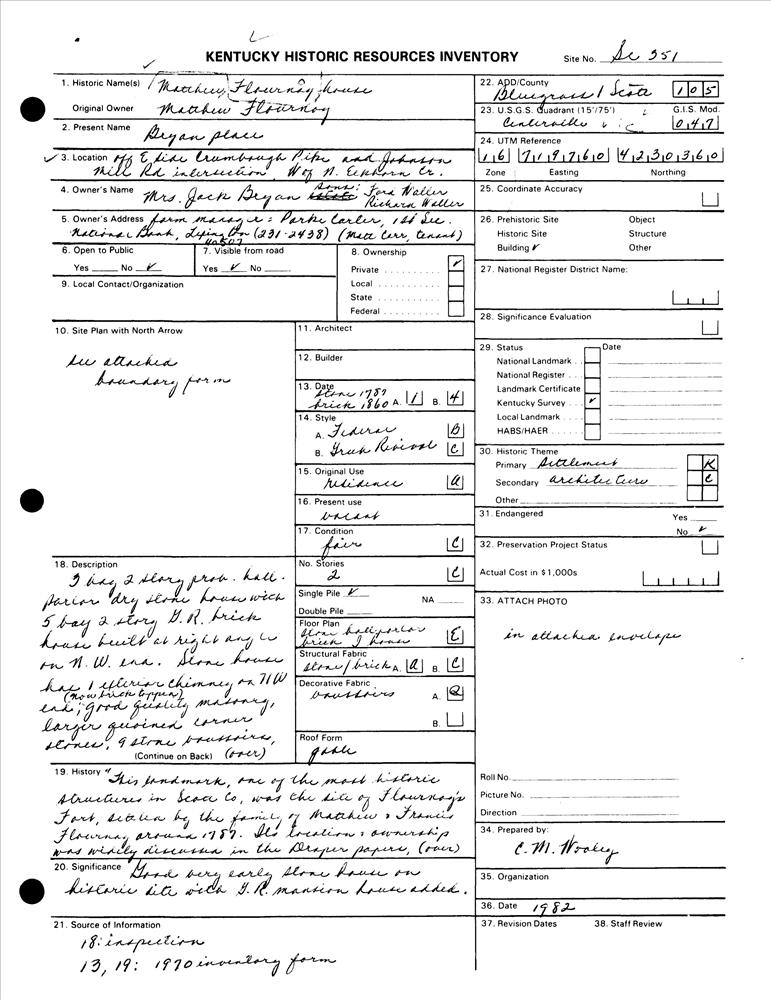 KENTUCKY HISTORIC RESOURCES INVENTORY
Site No. Sc 351
1. Historic Name(s) Matthew Flournoy house
Original Owner Matthew Flournoy
2. Present Name Bryan place
3. Location off E side Crumbaugh Pike and Johnson
Mill Rd intersection, W of N. Elkhorn Cr.
4. Owner's Name Mrs. Jack Bryan sons: Ford Waller
Richard Waller
5. Owner's Address farm manager: Parke Carter, 1st Sec.
National Bank, Lexington (231-2438) (Matt Carr, tenant)
40507
6. Open to Public
Yes No ✓
7. Visible from road
Yes ✓ No
8. Ownership
Private ✓
Local
State
Federal
9. Local Contact/Organization
10. Site Plan with North Arrow
see attached
boundary form
11. Architect
12. Builder
13. Date
stone 1787
brick 1860 A. 1 B. 4
14. Style
A. Federal B
B. Greek Revival C
15. Original Use
residence A
16. Present use
vacant
17. Condition
fair C
18. Description
3 bay 2 story prob. hall-
parlor dry stone house with
5 bay 2 story G.R. brick
house built at right angle
on N.W. end. Stone house
has 1 exterior chimney on NW
(now brick topped)
end; good quality masonry,
larger quoined corner
stones, 9 stone voussoirs,
(Continue on Back) (over)
No. Stories
2 C
Single Pile ✓ NA
Double Pile
Floor Plan
stone hall parlor
brick I house E
Structural Fabric
stone/brick A. A B. C
Decorative Fabric
voussoirs A.
B.
Roof Form
gable
19. History "This landmark, one of the most historic
structures in Scott Co, was the site of Flournoy's
Fort, settled by the family of Matthew & Francis
Flournoy around 1787. Its location & ownership
was widely discussed in the Draper papers, (over)
20. Significance Good very early stone house on
historic site with G.R. mansion house added.
21. Source of Information
18: inspection
13, 19: 1970 inventory form
22. ADD/County
Bluegrass / Scott 1 0 5
23. U.S.G.S. Quadrant (15'/75') G.I.S. Mod.
Centerville 0 4 7
24. UTM Reference
1 6 7 1 9 7 6 0 4 2 3 0 3 6 0
Zone Easting Northing
25. Coordinate Accuracy
26. Prehistoric Site Object
Historic Site Structure
Building ✓ Other
27. National Register District Name:
28. Significance Evaluation
29. Status Date
National Landmark
National Register
Landmark Certificate
Kentucky Survey ✓
Local Landmark
HABS/HAER
30. Historic Theme
Primary Settlement K
Secondary architecture C
Other
31. Endangered Yes
No ✓
32. Preservation Project Status
Actual Cost in $1,000s
33. ATTACH PHOTO
in attached envelope
Roll No.
Picture No.
Direction
34. Prepared by:
C. M. Wooley
35. Organization
36. Date 1982
37. Revision Dates 38. Staff Review